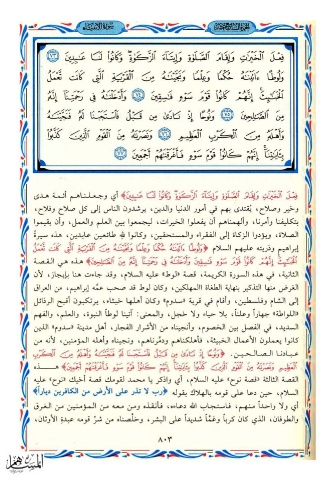 سورة الأنبياء
فِعْلَ الْخَيْرَاتِ وَإِقَامَ الصَّلَوٰةِ وَإِيتَاءَ الزَّكَوٰةِ وَكَانُوا لَنَا عَابِدِينَ ﴿٧٣﴾
وَلُوطًا ءَاتَيْنَاهُ حُكْمًا وَعِلْمًا وَنَجَّيْنَاهُ مِنَ الْقَرْيَةِ الَّتِي كَانَت تَّعْمَلُ
الْخَبَائِثَ إِنَّهُمْ كَانُوا قَوْمَ سَوْءٍ فَاسِقِينَ ﴿٧٤﴾ وَأَدْخَلْنَاهُ فِي رَحْمَتِنَا إِنَّهُ
مِنَ الصَّالِحِينَ ﴿٧٥﴾ وَنُوحًا إِذْ نَادَىٰ مِن قَبْلُ فَاسْتَجَبْنَا لَهُ فَنَجَّيْنَاهُ
وَأَهْلَهُ مِنَ الْكَرْبِ الْعَظِيمِ ﴿٧٦﴾ وَنَصَرْنَاهُ مِنَ الْقَوْمِ الَّذِينَ كَذَّبُوا
بِآيَاتِنَا إِنَّهُمْ كَانُوا قَوْمَ سَوْءٍ فَأَغْرَقْنَاهُمْ أَجْمَعِينَ ﴿٧٧﴾
فِعْلَ الْخَيْرَاتِ وَإِقَامَ الصَّلَوٰةِ وَإِيتَاءَ الزَّكَوٰةِ وَكَانُوا لَنَا عَابِدِينَ﴾ أي وجعلناهم أئمة هدى
وخير وصلاح، يُقتدى بهم في أمور الدنيا والدين، يرشدون الناس إلى كل صلاح وفلاح،
بتكليفنا وأمرنا، وألهمناهم أن يفعلوا الخيرات، ليجمعوا بين العلم والعمل، وأن يقيموا
الصلاة، ويؤدوا الزكاة إلى الفقراء والمستحقين، وكانوا لله طائعين عابدين، هذه سيرة
إبراهيم وذريته عليهم السلام ﴿وَلُوطًا ءَاتَيْنَاهُ حُكْمًا وَعِلْمًا وَنَجَّيْنَاهُ مِنَ الْقَرْيَةِ الَّتِي كَانَت تَّعْمَلُ
الْخَبَائِثَ إِنَّهُمْ كَانُوا قَوْمَ سَوْءٍ فَاسِقِينَ وَأَدْخَلْنَاهُ فِي رَحْمَتِنَا إِنَّهُ مِنَ الصَّالِحِينَ﴾ هذه هي القصة
الثانية، في هذه السورة الكريمة، قصة «لوط» عليه السلام، وقد جاءت هنا بإيجاز، لأن
الغرض منها التذكير بنهاية الطغاة المهلكين، وكان لوط قد صحب عمَّه إبراهيم، من العراق
إلى الشام وفلسطين، وأقام في قرية «سدوم» وكان أهلها خبثاء، يرتكبون أقبح الرذائل
«اللواطة» جهاراً وعلناً، بلا حياء ولا خجل، والمعنى: آتينا لوطاً النبوة، والعلم، والفهم
السديد، في الفصل بين الخصوم، وأنجيناه من الأشرار الفجار، أهل مدينة «سدوم» الذين
كانوا يعملون الأعمال الخبيثة، فأهلكناهم ودمرناهم، ونجيناه وأهله المؤمنين، لأنه من
عبادنا الصالحين. ﴿وَنُوحًا إِذْ نَادَىٰ مِن قَبْلُ فَاسْتَجَبْنَا لَهُ فَنَجَّيْنَاهُ وَأَهْلَهُ مِنَ الْكَرْبِ
الْعَظِيمِ وَنَصَرْنَاهُ مِنَ الْقَوْمِ الَّذِينَ كَذَّبُوا بِآيَاتِنَا إِنَّهُمْ كَانُوا قَوْمَ سَوْءٍ فَأَغْرَقْنَاهُمْ أَجْمَعِينَ﴾ هذه
القصة الثالثة «قصة نوح» عليه السلام، أي واذكر يا محمد لقومك قصة أخيك «نوح» عليه
السلام، حين دعا على قومه بالهلاك بقوله ﴿رب لا تذر على الأرض من الكافرين ديارا﴾
أي ولا واحداً منهم، فاستجاب الله دعاءه، فأنقذه ومن معه من المؤمنين من الغرق
والطوفان، الذي كان كرباً وغمًّا شديداً على البشر، وخلَّصناه من شرّ قومه عبدة الأوثان،
٨٠٣